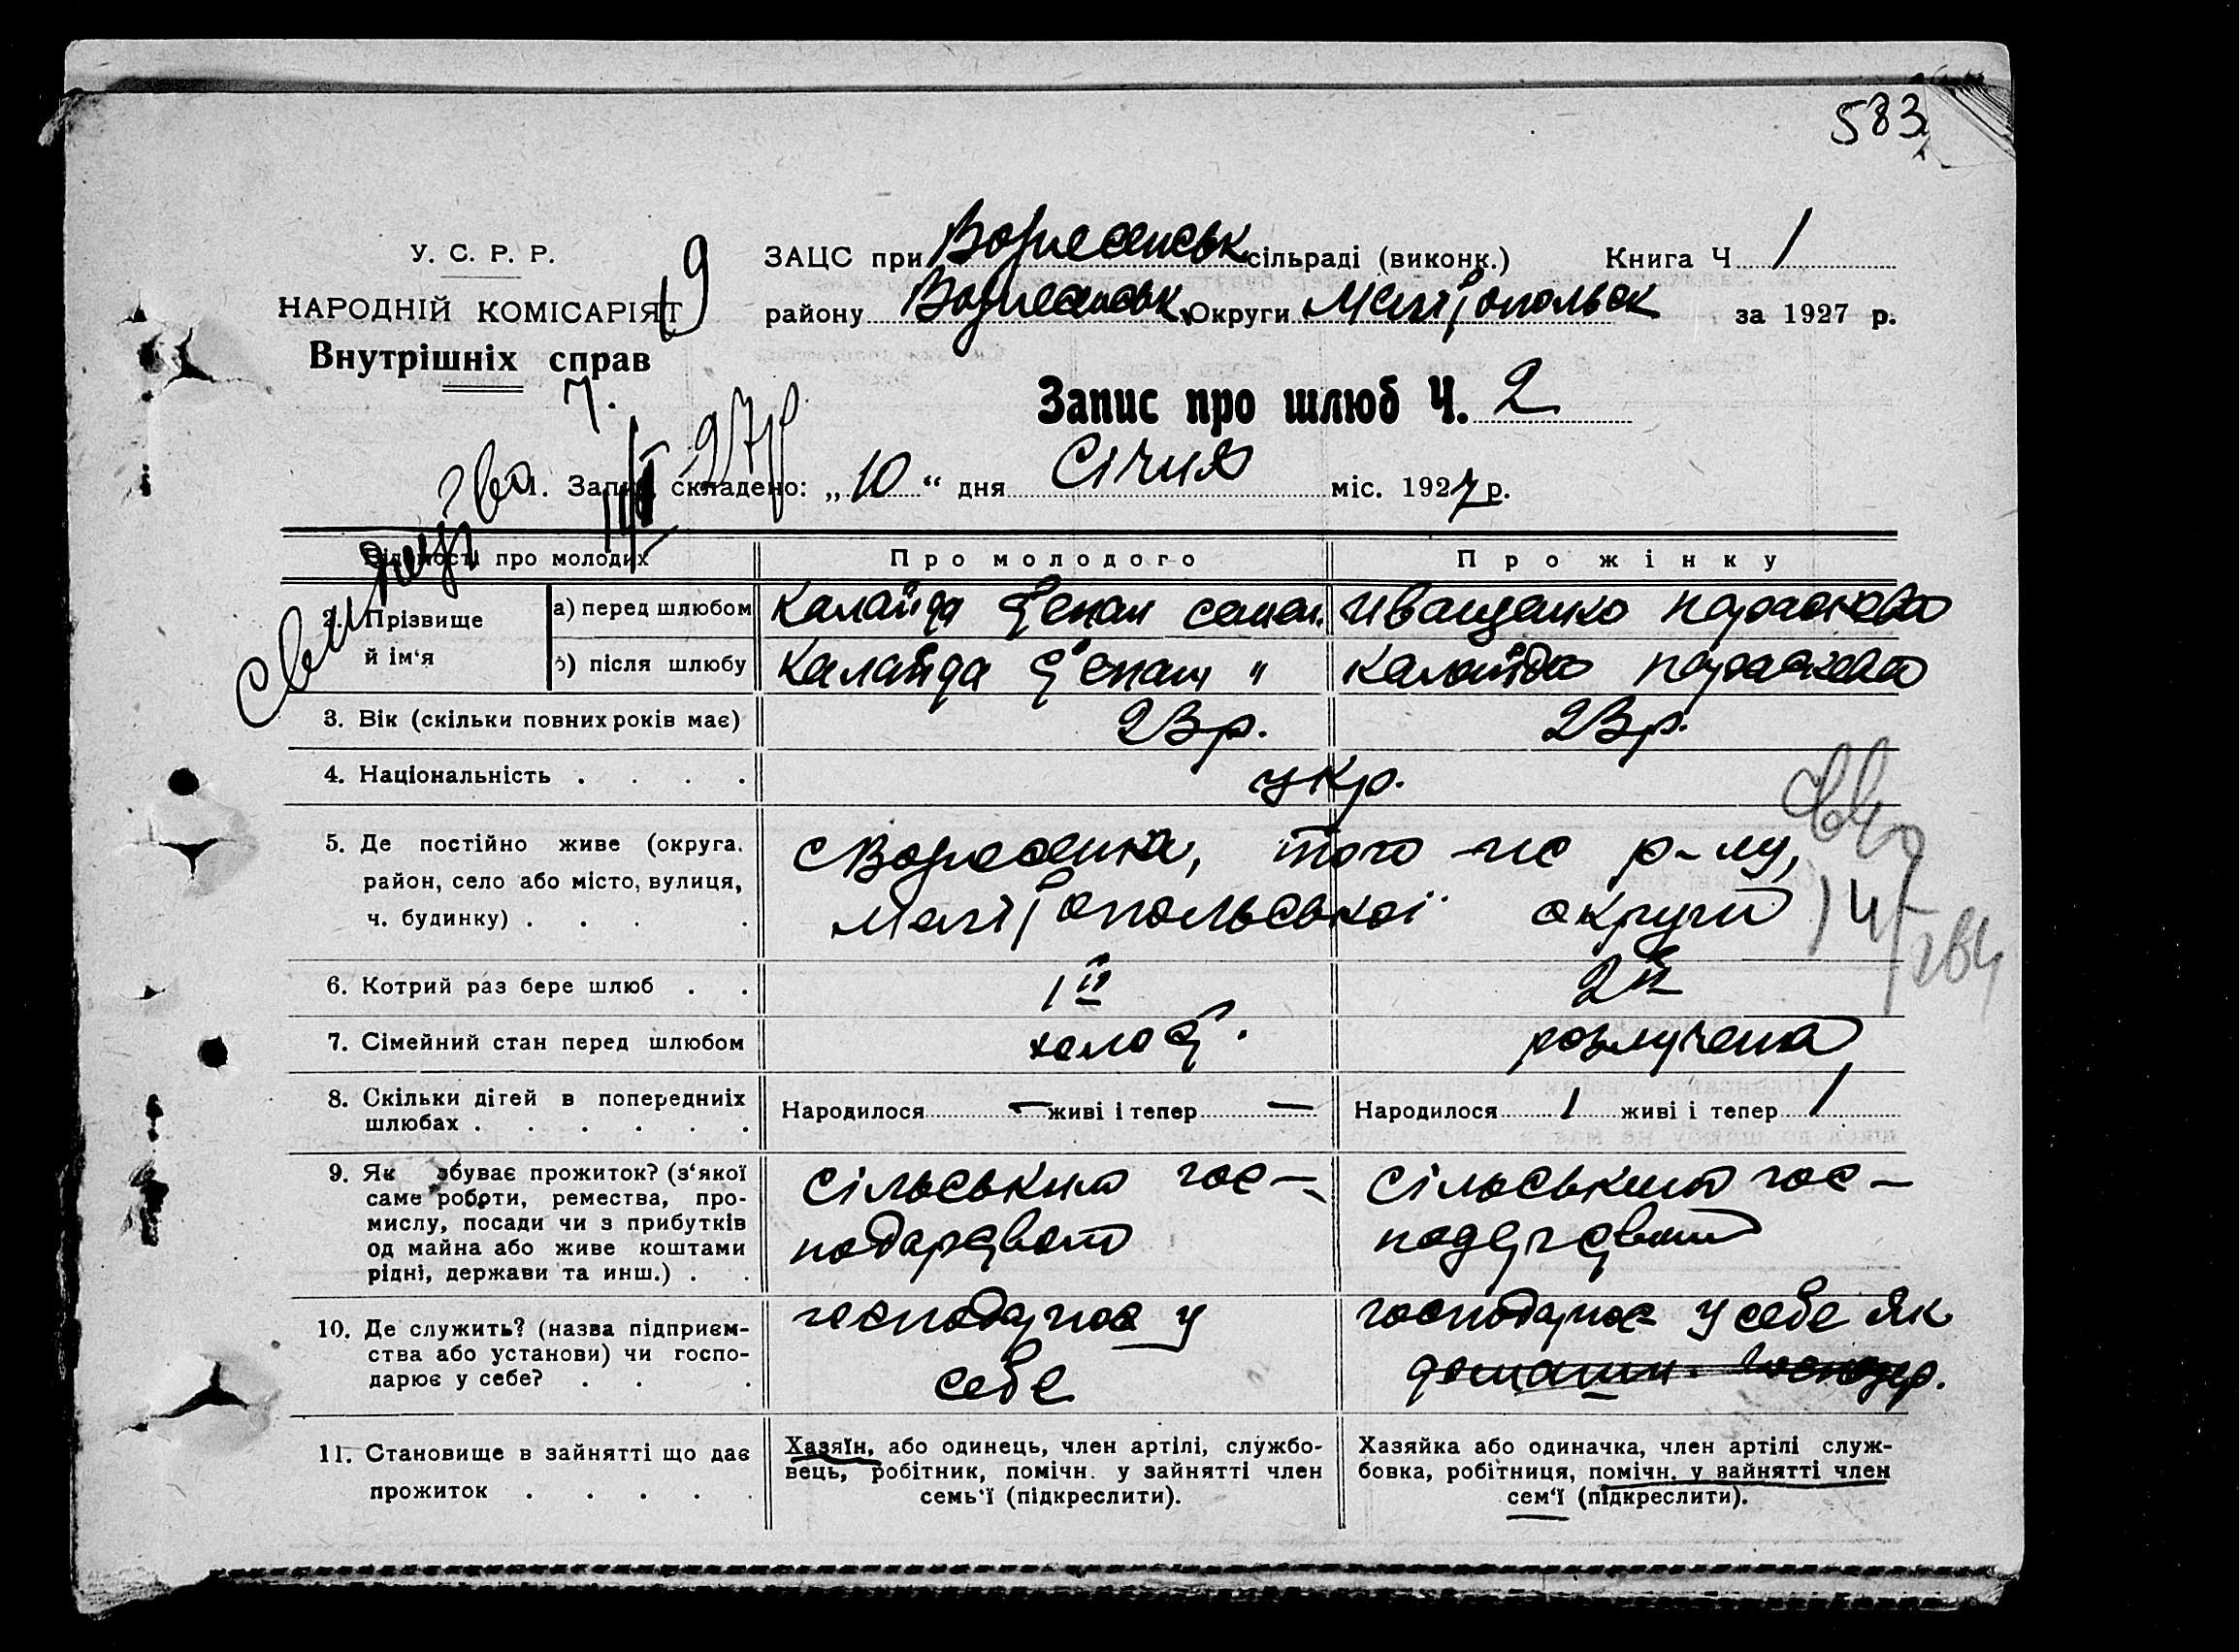 583
У. С. Р. Р.
НАРОДНІЙ КОМІСАРІЯТ
Внутрішніх справ
9
ЗАЦС при Вознесенськ сільраді (виконк.) Книга Ч 1
району Вознесенськ Округи Меліτопольськ за 1927 р.
Запис про шлюб Ч. 2
7.
27р
1. Запис складено: „10“ дня Січня міс. 1927 р.
Відомості про молодих
Про молодого
Про жінку
2. Прізвище й ім‘я
а) перед шлюбом
Калайда Степан семен.
Иващенко параскева
б) після шлюбу
Калайда Степан "
Калайда параскева
3. Вік (скільки повних років має)
23 р.
23 р.
4. Національність . . . .
укр.
5. Де постійно живе (округа.
район, село або місто, вулиця,
ч. будинку) . . . .
с Вознесенка, того -же р-ну,
Мелітопольської округи
6. Котрий раз бере шлюб . .
1й
2й
7. Сімейний стан перед шлюбом
холост.
розлучена
8. Скільки дітей в попередниіх
шлюбах . . . . . .
Народилося — живі і тепер —
Народилося 1 живі і тепер 1
9. Як збуває прожиток? (з‘якої
саме роботи, ремества, про-
мислу, посади чи з прибутків
од майна або живе коштами
рідні, держави та инш.) . .
сільським гос-
подарством
сільським гос-
подарством
10. Де служить? (назва підприєм-
ства або установи) чи госпо-
дарює у себе? . . .
господарює у
себе
господарює у себе як
домашн. господ.
11. Становище в зайнятті що дає
прожиток . . . . .
Хазяїн, або одинець, член артілі, службо-
вець, робітник, помічн. у зайнятті член
семь‘ї (підкреслити).
Хазяйка або одиначка, член артілі служ-
бовка, робітниця, помічн. у зайнятті член
сем‘ї (підкреслити).